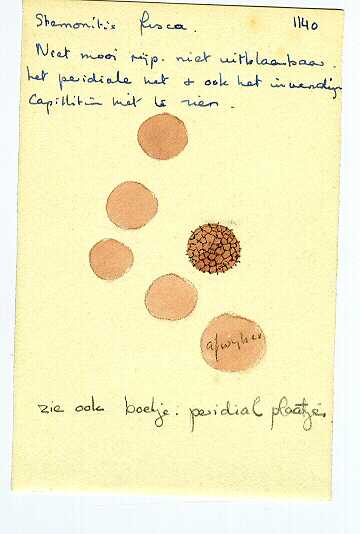 Stemonitis fusca. 1140
Niet mooi rijp. niet uitblaasbaar.
het peridiale net & ook het inwendige
Capillitium niet te zien.
afwijkend
zie ook boekje: peridial plaatjes